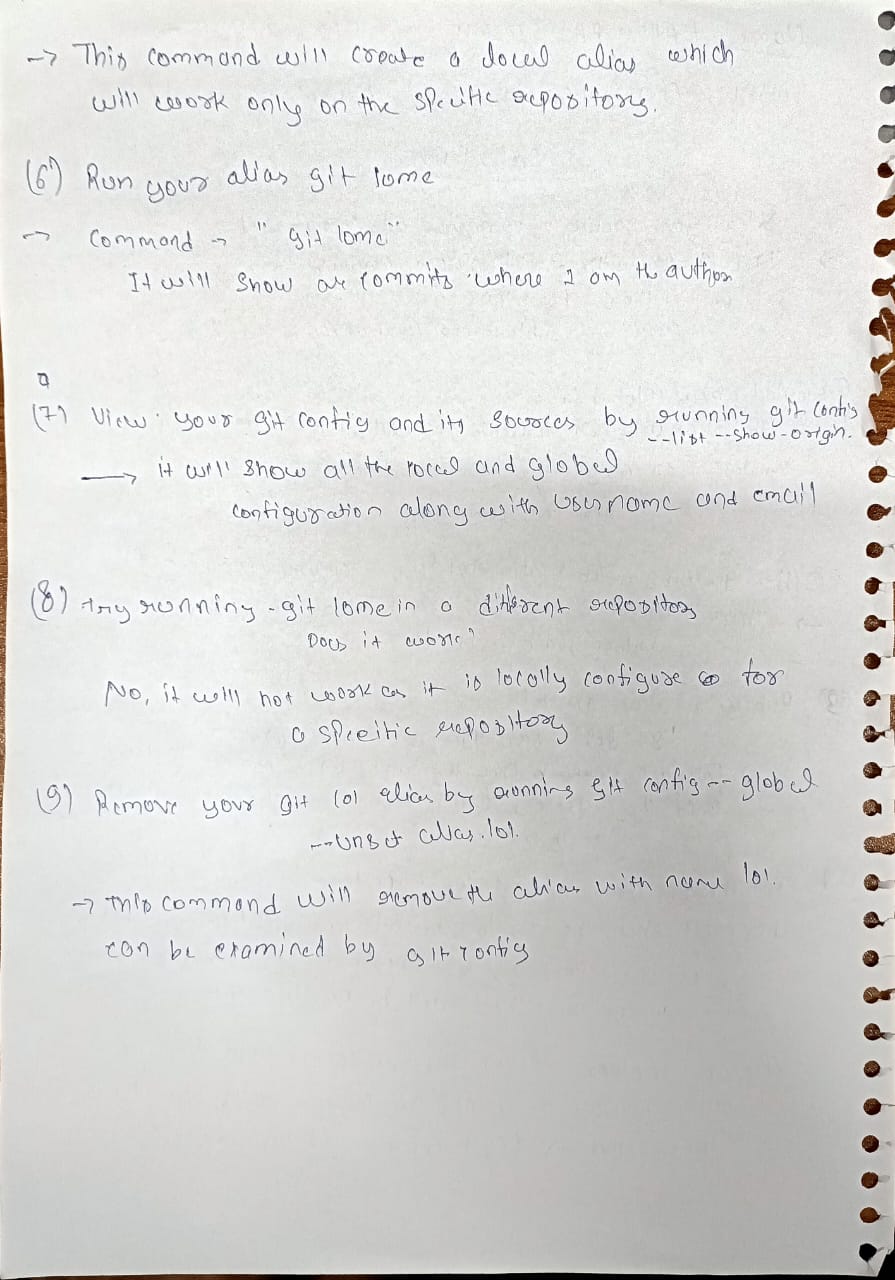 -> This command will create a local alias which
will work only on the specific repository.
(6) Run your alias git lome
-> Command -> "git lome"
It will show all commits where I am the author
(7) View your git config and its sources by running git config
--list --show-origin.
-> it will show all the local and global
configuration along with username and email
(8) try running - git lome in a different repository
Does it work?
No, it will not work as it is locally configure for
a specific repository
(9) Remove your git lol alias by running git config -- global
--unset alias.lol.
-> This command will remove the alias with name lol.
can be examined by git config